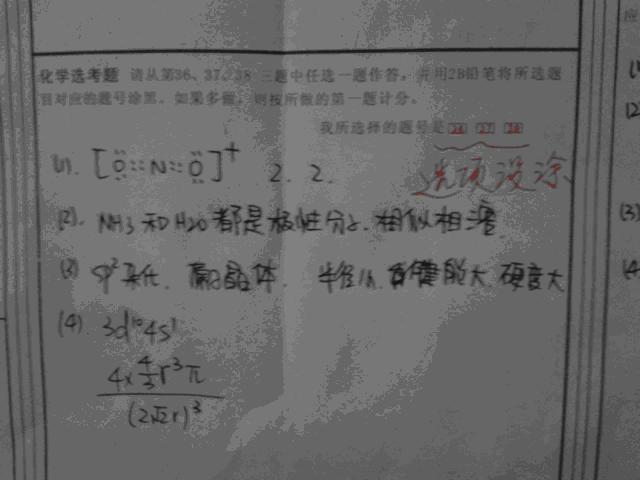 化学选考题 请从第36、37、38 三题中任选一题作答，并用2B铅笔将所选题
目对应的题号涂黑，如果多做，则按所做的第一题计分。
我所选择的题号是 36 37 38
选项没涂
(1). [:Ö::N::Ö:]⁺ 2. 2.
(2). NH3 和 H2O 都是极性分子. 相似相溶
(3) sp² 杂化. 晶体. 半径小. 键能大. 硬度大
(4) 3d¹⁰4s¹
4×4/3r³π
(2√2r)³
应
(1
(2
(3)
(4